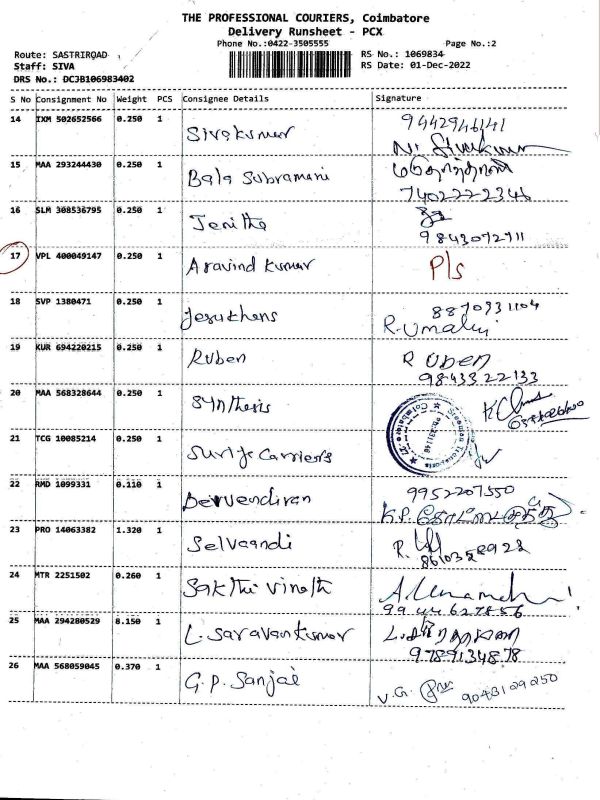 THE PROFESSIONAL COURIERS, Coimbatore
Delivery Runsheet - PCX
Phone No.:0422-3505555
Page No.:2
Route: SASTRIROAD
RS No.: 1069834
Staff: SIVA
RS Date: 01-Dec-2022
DRS No.: DC3B106983402
S No Consignment No Weight PCS Consignee Details Signature
14 IXM 502652566 0.250 1 Sivakumar 9442946141
15 MAA 293244430 0.250 1 Bala Subramani 7402222346
16 SLM 308536795 0.250 1 Jenitha 9843072711
17 VPL 400049147 0.250 1 Aravind Kumar P/s
18 SVP 1380471 0.250 1 8870931104
R. Umalui
19 KUR 694220215 0.250 1 Ruben R Uben
9843322133
20 MAA 568328644 0.250 1 Synthesis
21 TCG 10085214 0.250 1 Carriers
22 RMD 1099331 0.110 1 9952207550
23 PRO 14063382 1.320 1 Selvaandi
24 MTR 2251502 0.260 1 Sakthi Vinoth
9944627856
25 MAA 294280529 8.150 1 L. Saravankumar
9789134878
26 MAA 568059045 0.370 1 G.P. Sanjai V.G. 9043129250